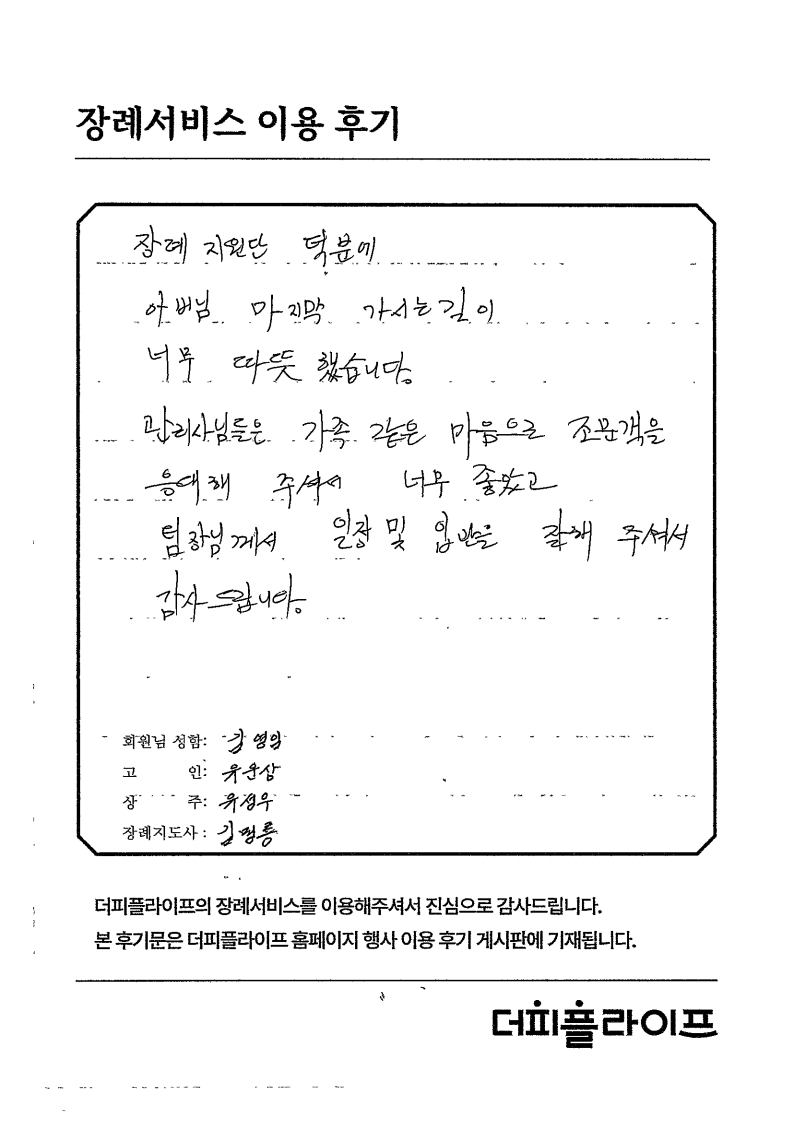 장례서비스 이용 후기
장례 지원단 덕분에
아버님 마지막 가시는길이
너무 따뜻했습니다.
관리사님들은 가족 같은 마음으로 조문객을
응대해 주셔서 너무 좋았고
팀장님께서 일정 및 입관을 잘해 주셔서
감사드립니다.
회원님 성함:
고 인: 유운삼
상 주: 유정우
장례지도사 : 김평룡
더피플라이프의 장례서비스를 이용해주셔서 진심으로 감사드립니다.
본 후기문은 더피플라이프 홈페이지 행사 이용 후기 게시판에 기재됩니다.
더피플라이프